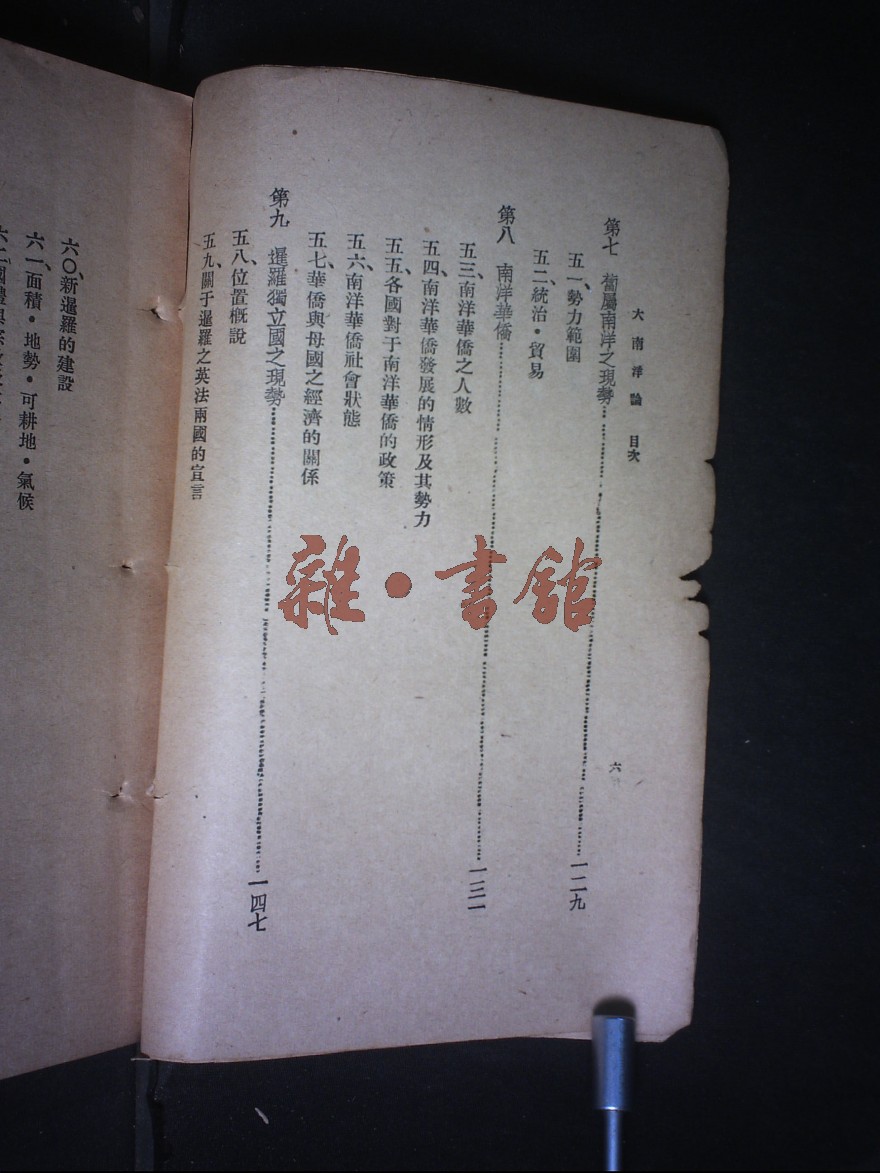 大南洋論　目次
六
第七　葡屬南洋之現勢……一二九
五一、勢力範圍
五二、統治・貿易
第八　南洋華僑……一三一
五三、南洋華僑之人數
五四、南洋華僑發展的情形及其勢力
五五、各國對于南洋華僑的政策
五六、南洋華僑社會狀態
五七、華僑與母國之經濟的關係
第九　暹羅獨立國之現勢……一四七
五八、位置概說
五九、關于暹羅之英法兩國的宣言
六〇、新暹羅的建設
六一、面積・地勢・可耕地・氣候
雜・書館